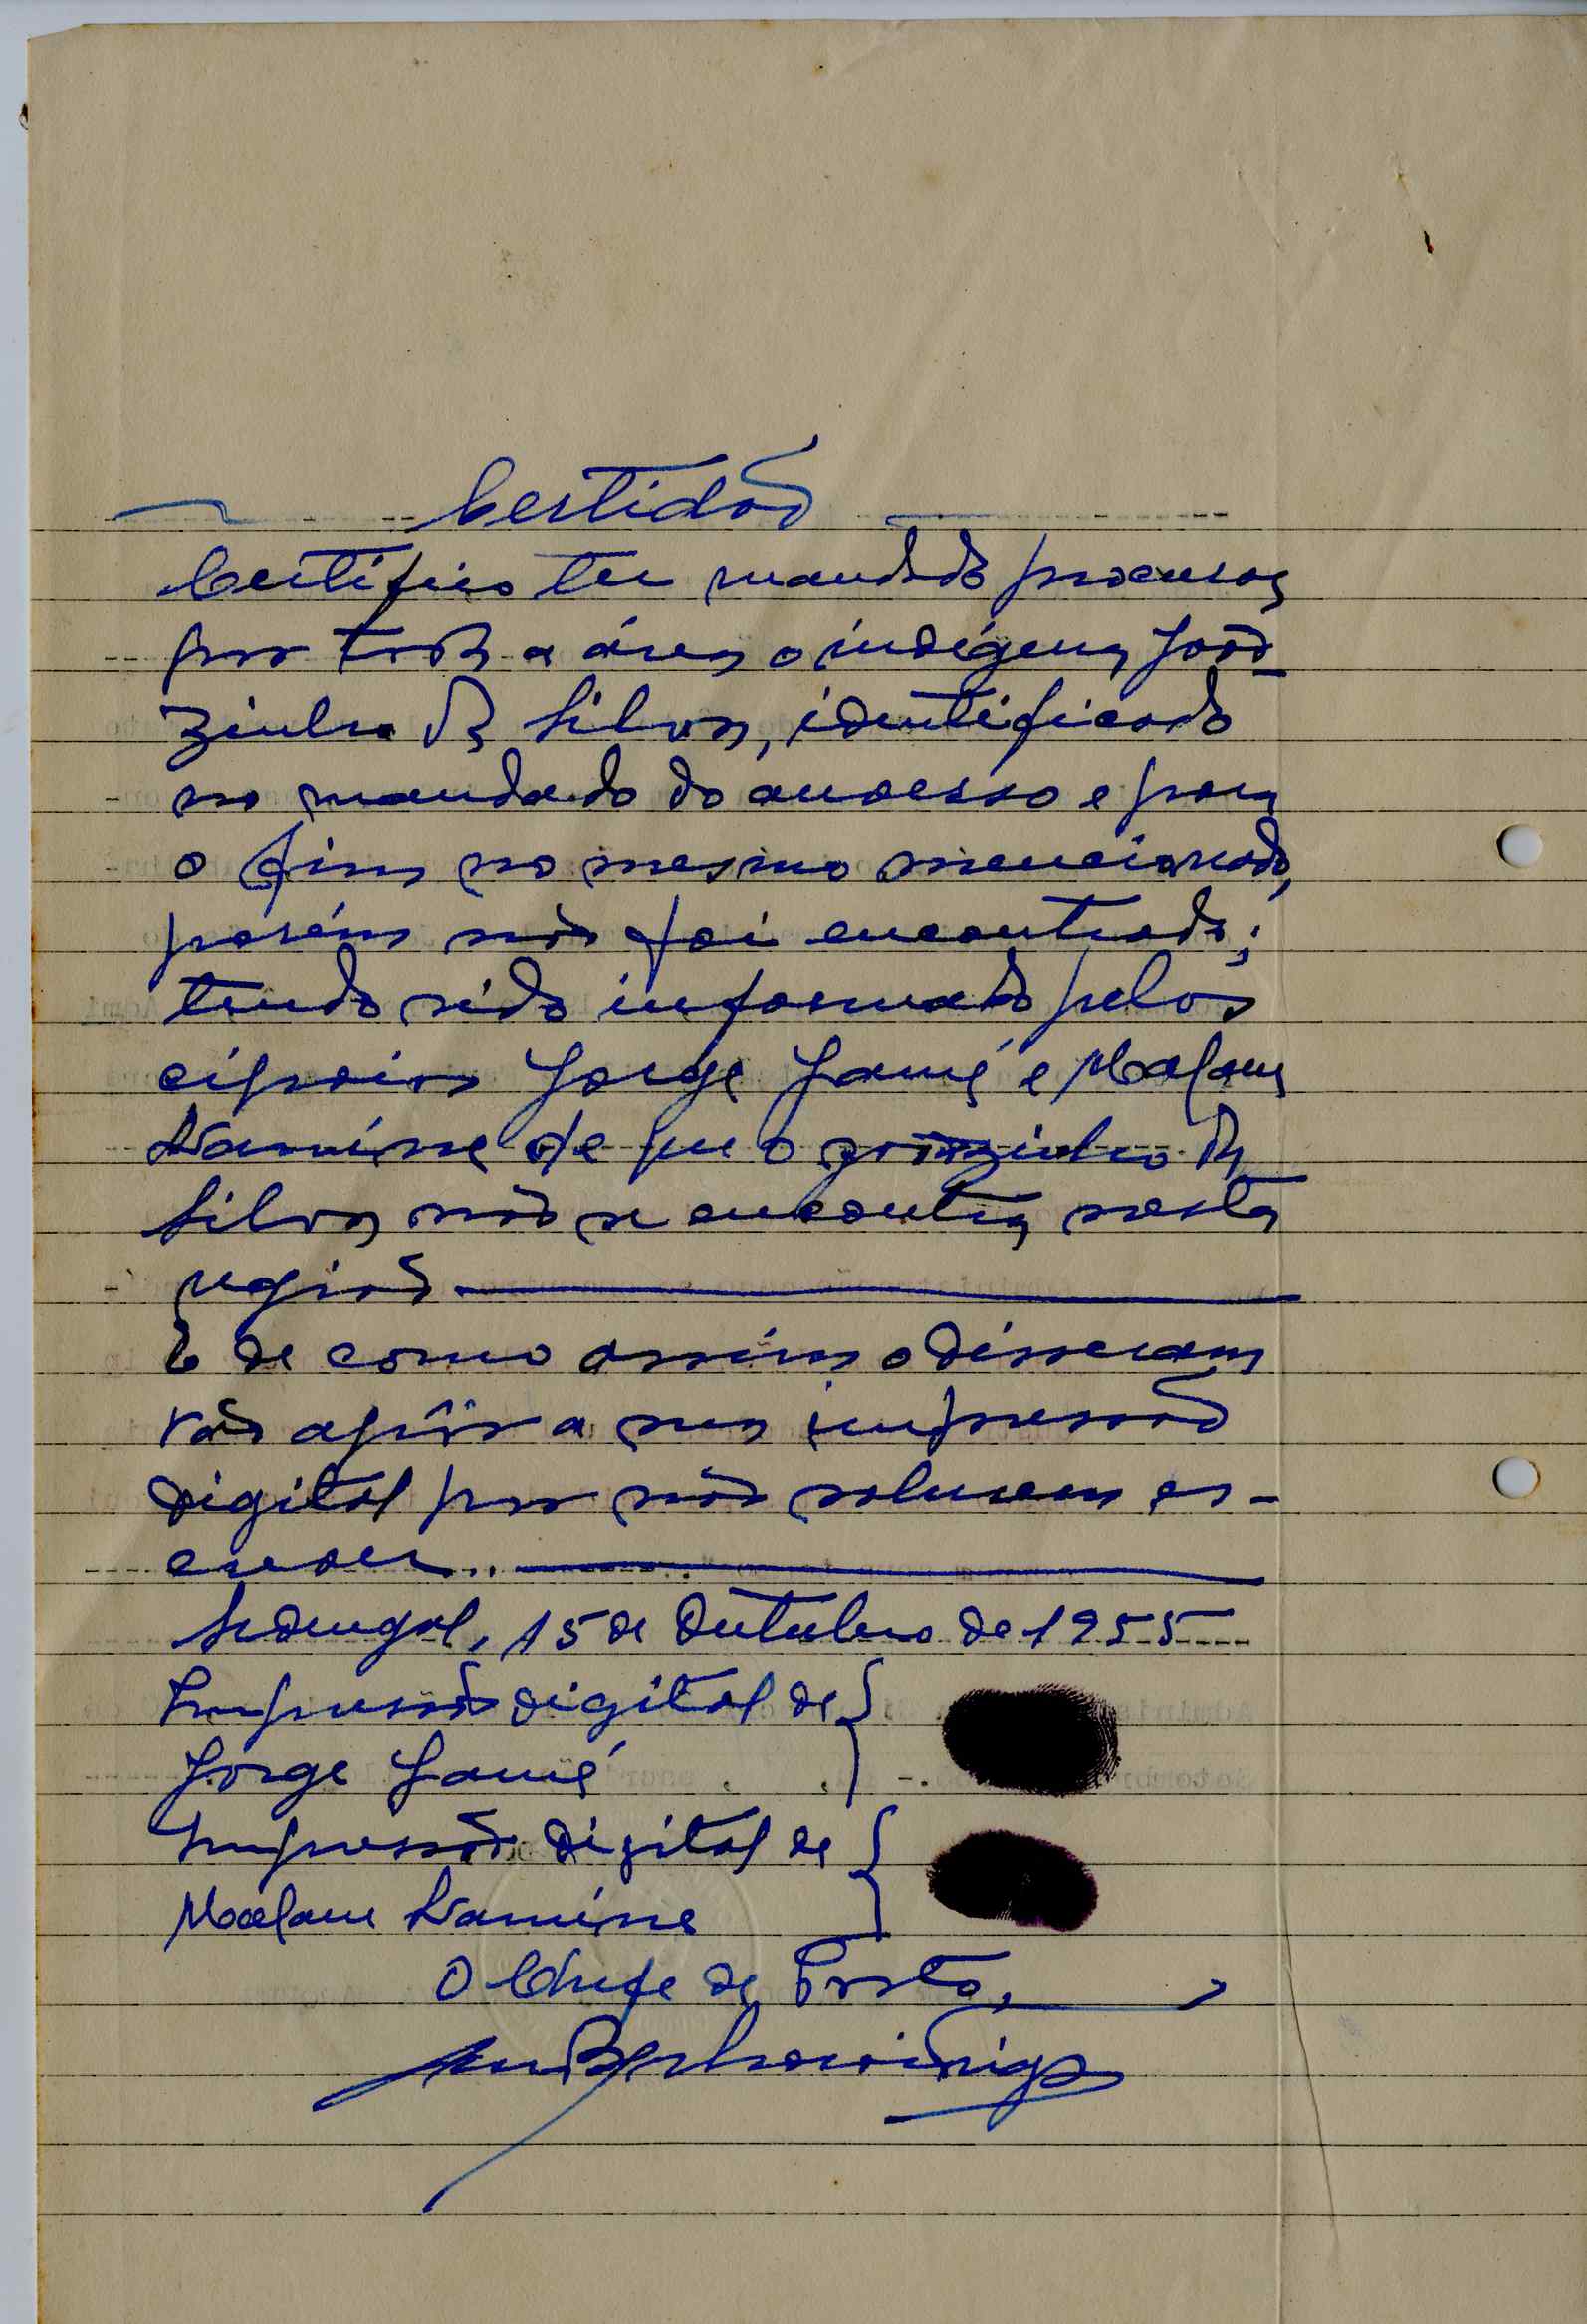 Certidão
Certifico ter mandado procurar
por toda a área o indígena João
zinho da Silva, identificado
no mandado do anverso e para
o fim no mesmo mencionado,
porém não foi encontrado;
tendo sido informado pelos
cipaios Jorge Gamé e Malam
Naminne de que o Joãozinho da
Silva não se encontra nesta
região.
E de como assim o disseram
vão apôr a sua impressão
digital por não saberem es-
crever.
Sedengal, 15 de Outubro de 1955
Impressão digital de
Jorge Gamé
Impressão digital de
Malam Naminne
O Chefe de Posto,